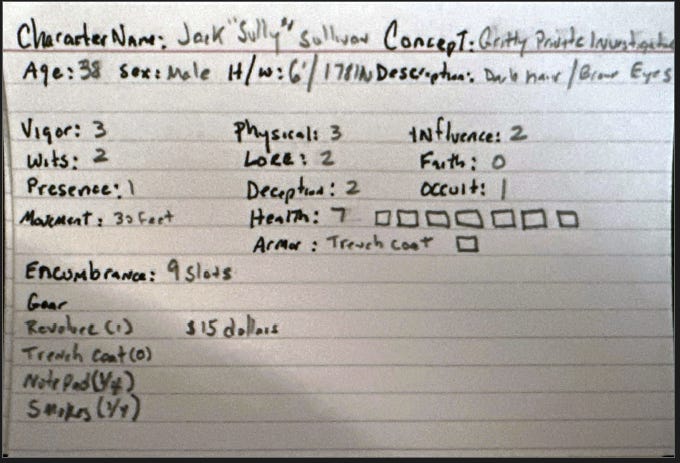 Character Name: Jack "Sully" Sullivan Concept: Gritty Private Investigator
Age: 38 Sex: Male H/W: 6'/178lb Description: Dark hair/Brown Eyes
Vigor: 3 Physical: 3 Influence: 2
Wits: 2 Lore: 2 Faith: 0
Presence: 1 Deception: 2 Occult: 1
Movement: 30 Feet Health: 7
Armor: Trench coat
Encumbrance: 9 Slots
Gear
Revolver (1) $15 dollars
Trench Coat (0)
Note Pad
Smokes